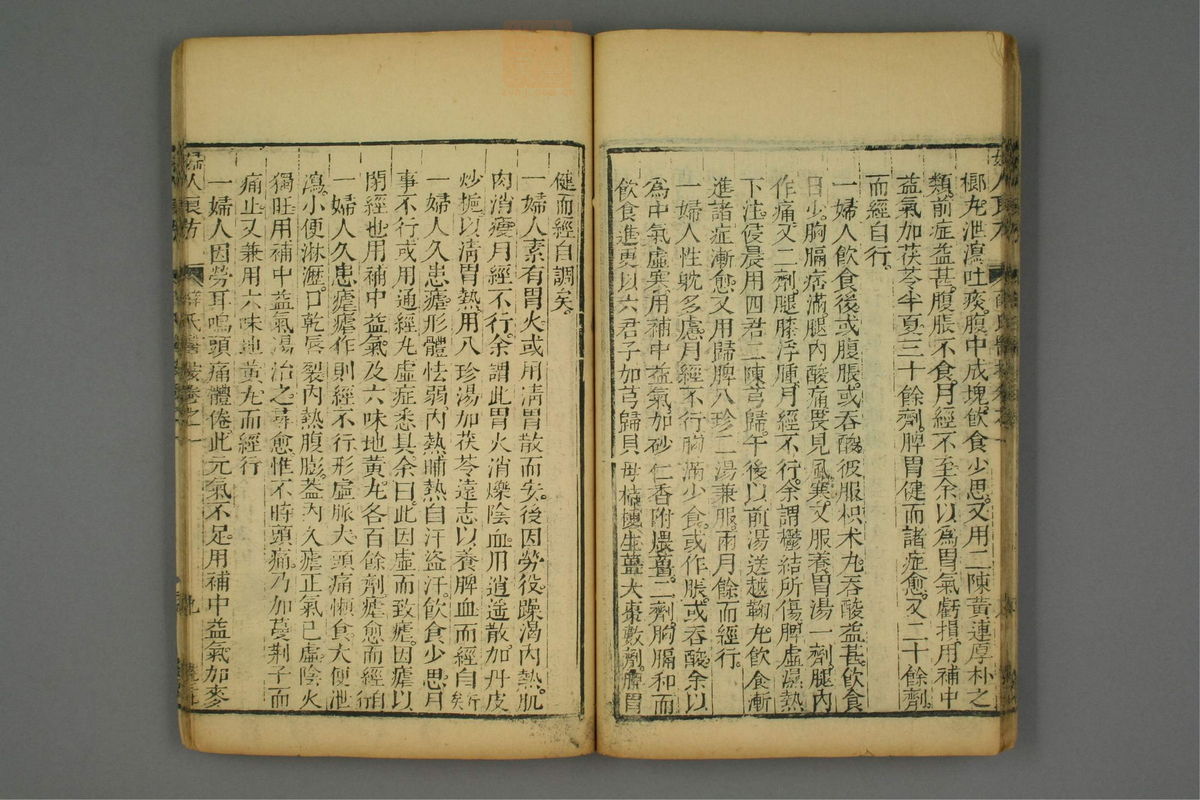 榔丸泄瀉吐痰腹中成塊飲食少思又用二陳黃連厚朴之
類前症益甚腹脹不食月經不至余以爲胃氣虧損用補中
益氣加茯苓半夏三十餘劑脾胃健而諸症愈又二十餘劑
而經自行
一婦人飲食後或腹脹或吞酸彼服枳朮丸吞酸益甚飲食
日少胸膈痞滿腿內酸痛畏見風寒又服養胃湯一劑腿內
作痛又二劑腿膝浮腫月經不行余謂欝結所傷脾虛濕熱
下注侵晨用四君二陳芎歸午後以前湯送越鞠丸飲食漸
進諸症漸愈又用歸脾八珍二湯兼服兩月餘而經行
一婦人性躭多慮月經不行胸滿少食或作脹或吞酸余以
爲中氣虛寒用補中益氣加砂仁香附煨薑二劑胸膈和而
飲食進更以六君子加芎歸貝母桔梗生薑大棗數劑脾胃
健而經自調矣
一婦人素有胃火或用清胃散而安後因勞役躁渴內熱肌
肉消瘦月經不行余謂此胃火消爍陰血用逍遙散加丹皮
炒梔以清胃熱用八珍湯加茯苓遠志以養脾血而經自行矣
一婦人久患瘧形體怯弱內熱晡熱自汗盜汗飲食少思月
事不行或用通經丸虛症悉具余曰此因虛而致瘧因瘧以
閉經也用補中益氣及六味地黃丸各百餘劑瘧愈而經自行
一婦人久患瘧瘧作則經不行形虛脈大頭痛懶食大便泄
瀉小便淋瀝口乾唇裂內熱腹膨蓋內久瘧正氣已虛陰火
獨旺用補中益氣湯治之尋愈惟不時頭痛乃加蔓荆子而
痛止又兼用六味地黃丸而經行
一婦人因勞耳鳴頭痛體倦此元氣不足用補中益氣加麥
婦人良方